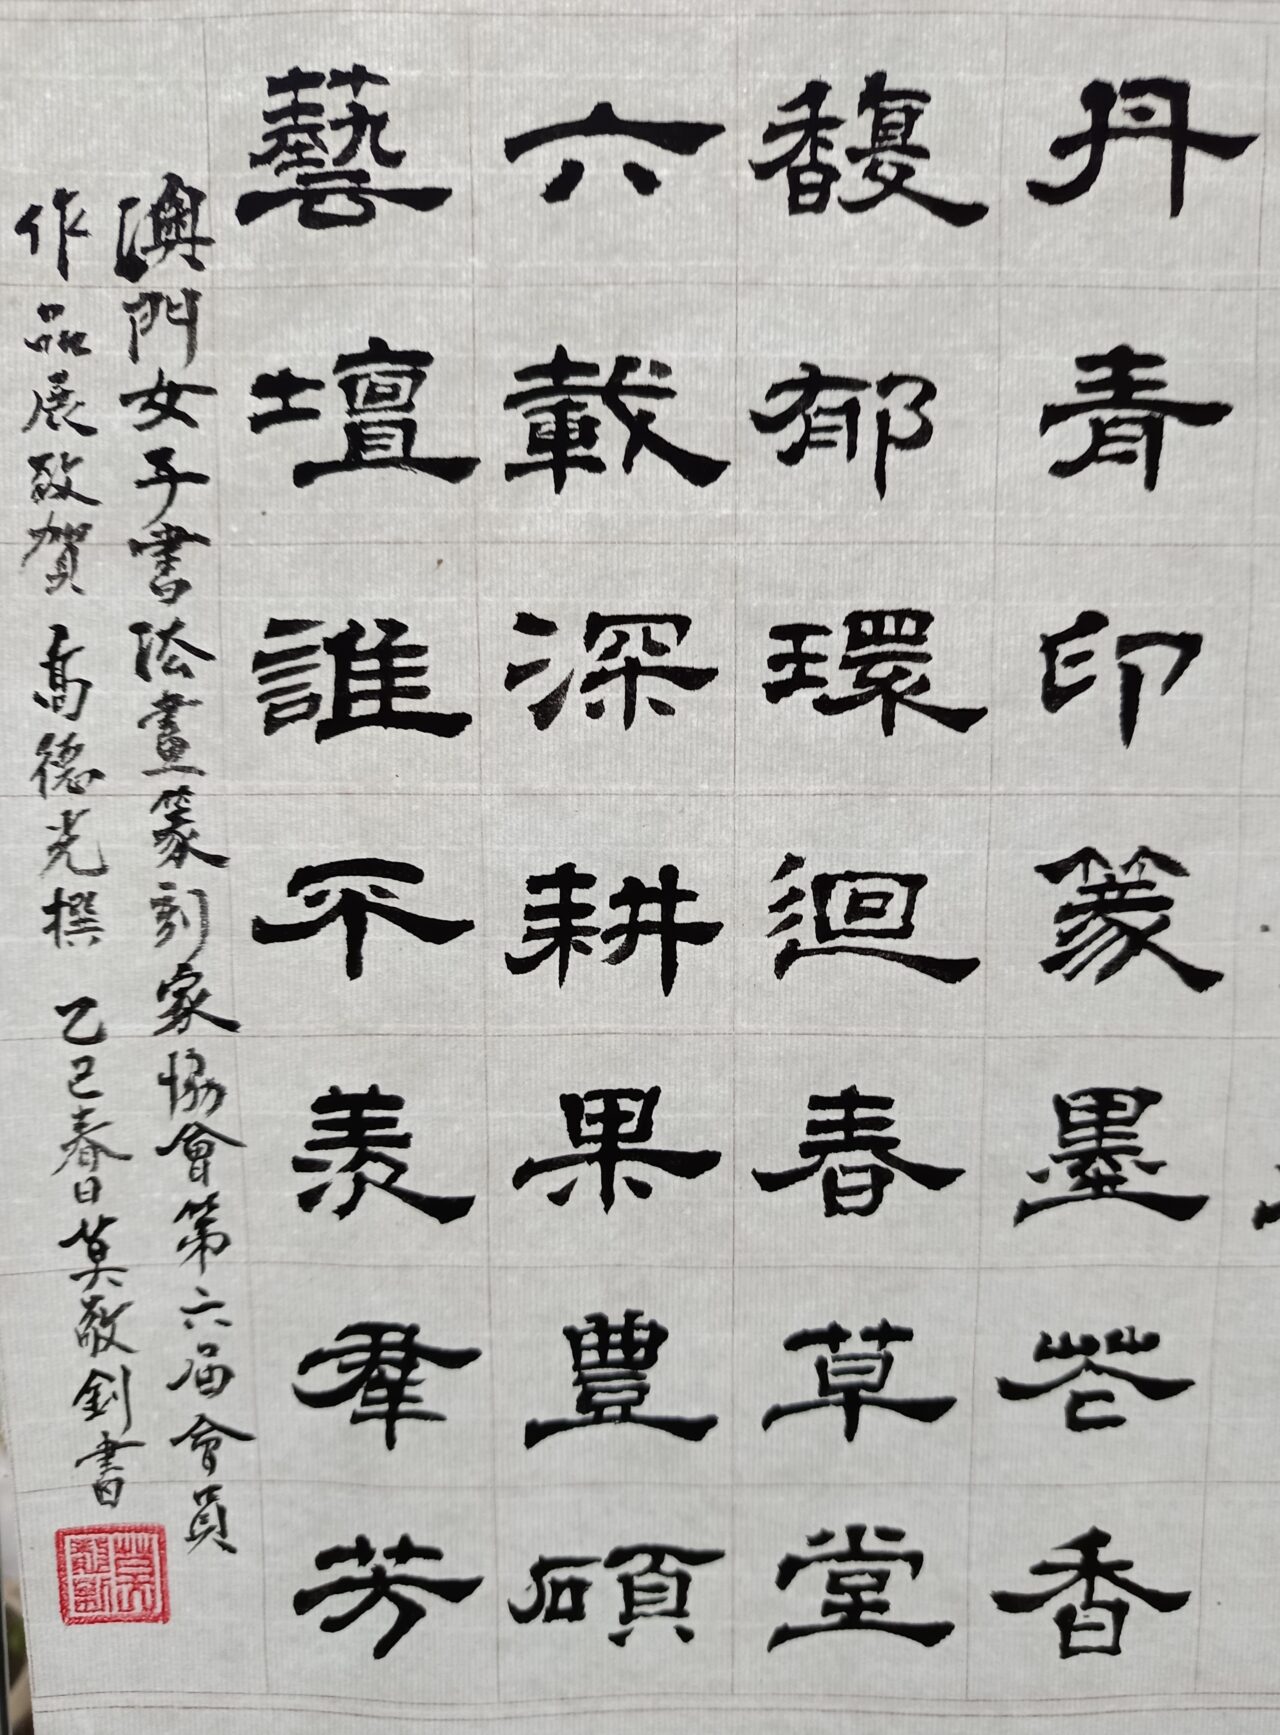 丹青印篆墨花香
馥郁環迴春草堂
六載深耕果豐碩
藝壇誰不羨羣芳
澳門女子書法畫篆刻家協會第六屆會員
作品展致賀 高德光撰 乙巳春日莫敬釗書